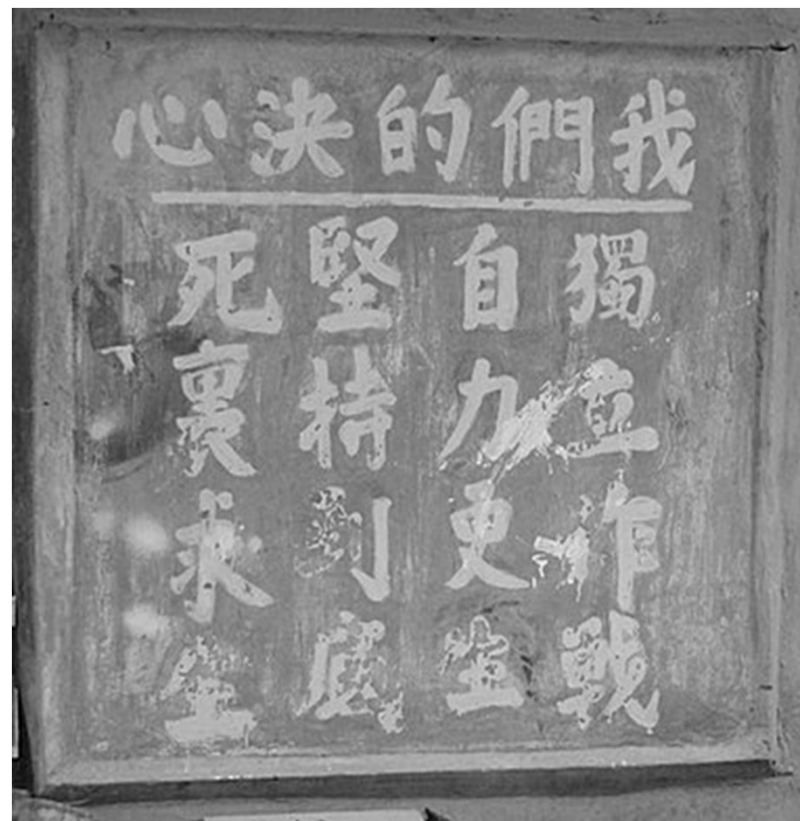 我們的決心
獨立作戰
自力更生
堅持到底
死裏求生